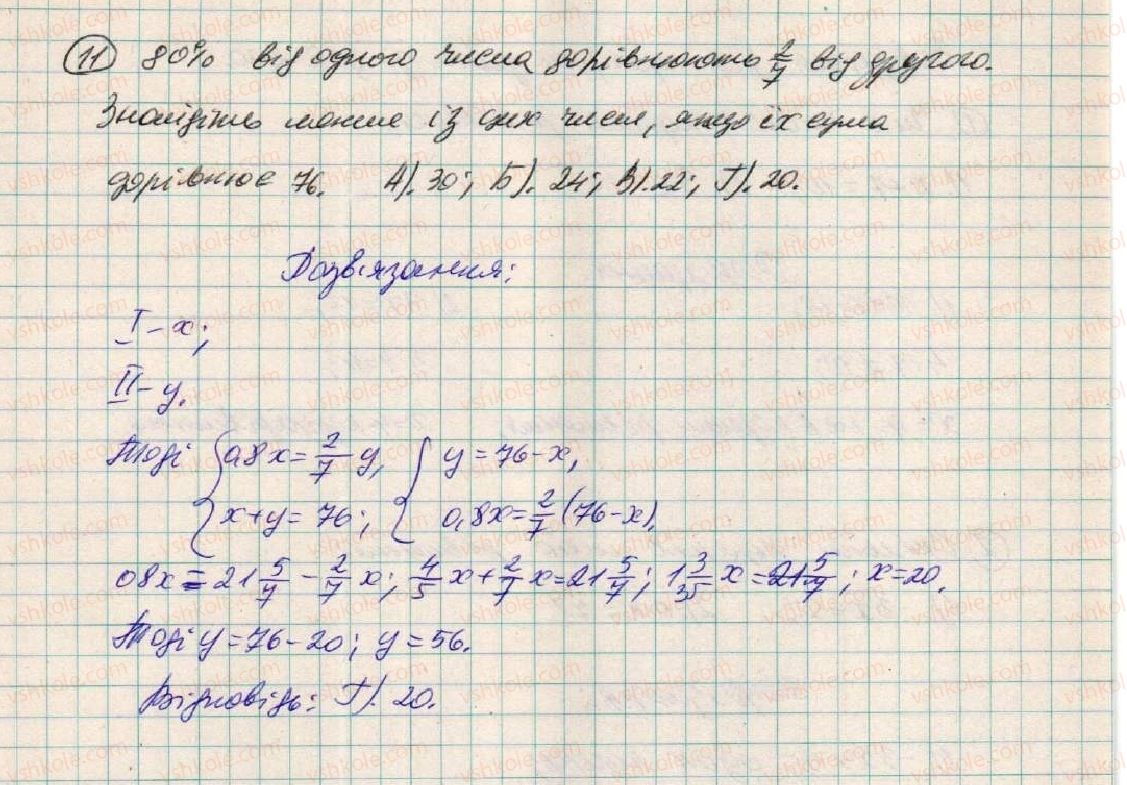 11 80% від одного числа дорівнюють 2/7 від другого.
Знайдіть менше із цих чисел, якщо їх сума
дорівнює 76. А). 30; Б). 24; В). 22; Г). 20.
Розв'язання:
I - x;
II - y.
Тоді { 0,8x = 2/7 y, { y = 76 - x,
x + y = 76; 0,8x = 2/7 (76 - x).
08x = 21 5/7 - 2/7 x; 4/5 x + 2/7 x = 21 5/7; 1 3/35 x = 21 5/7; x = 20.
Тоді y = 76 - 20; y = 56.
Відповідь: Г). 20.